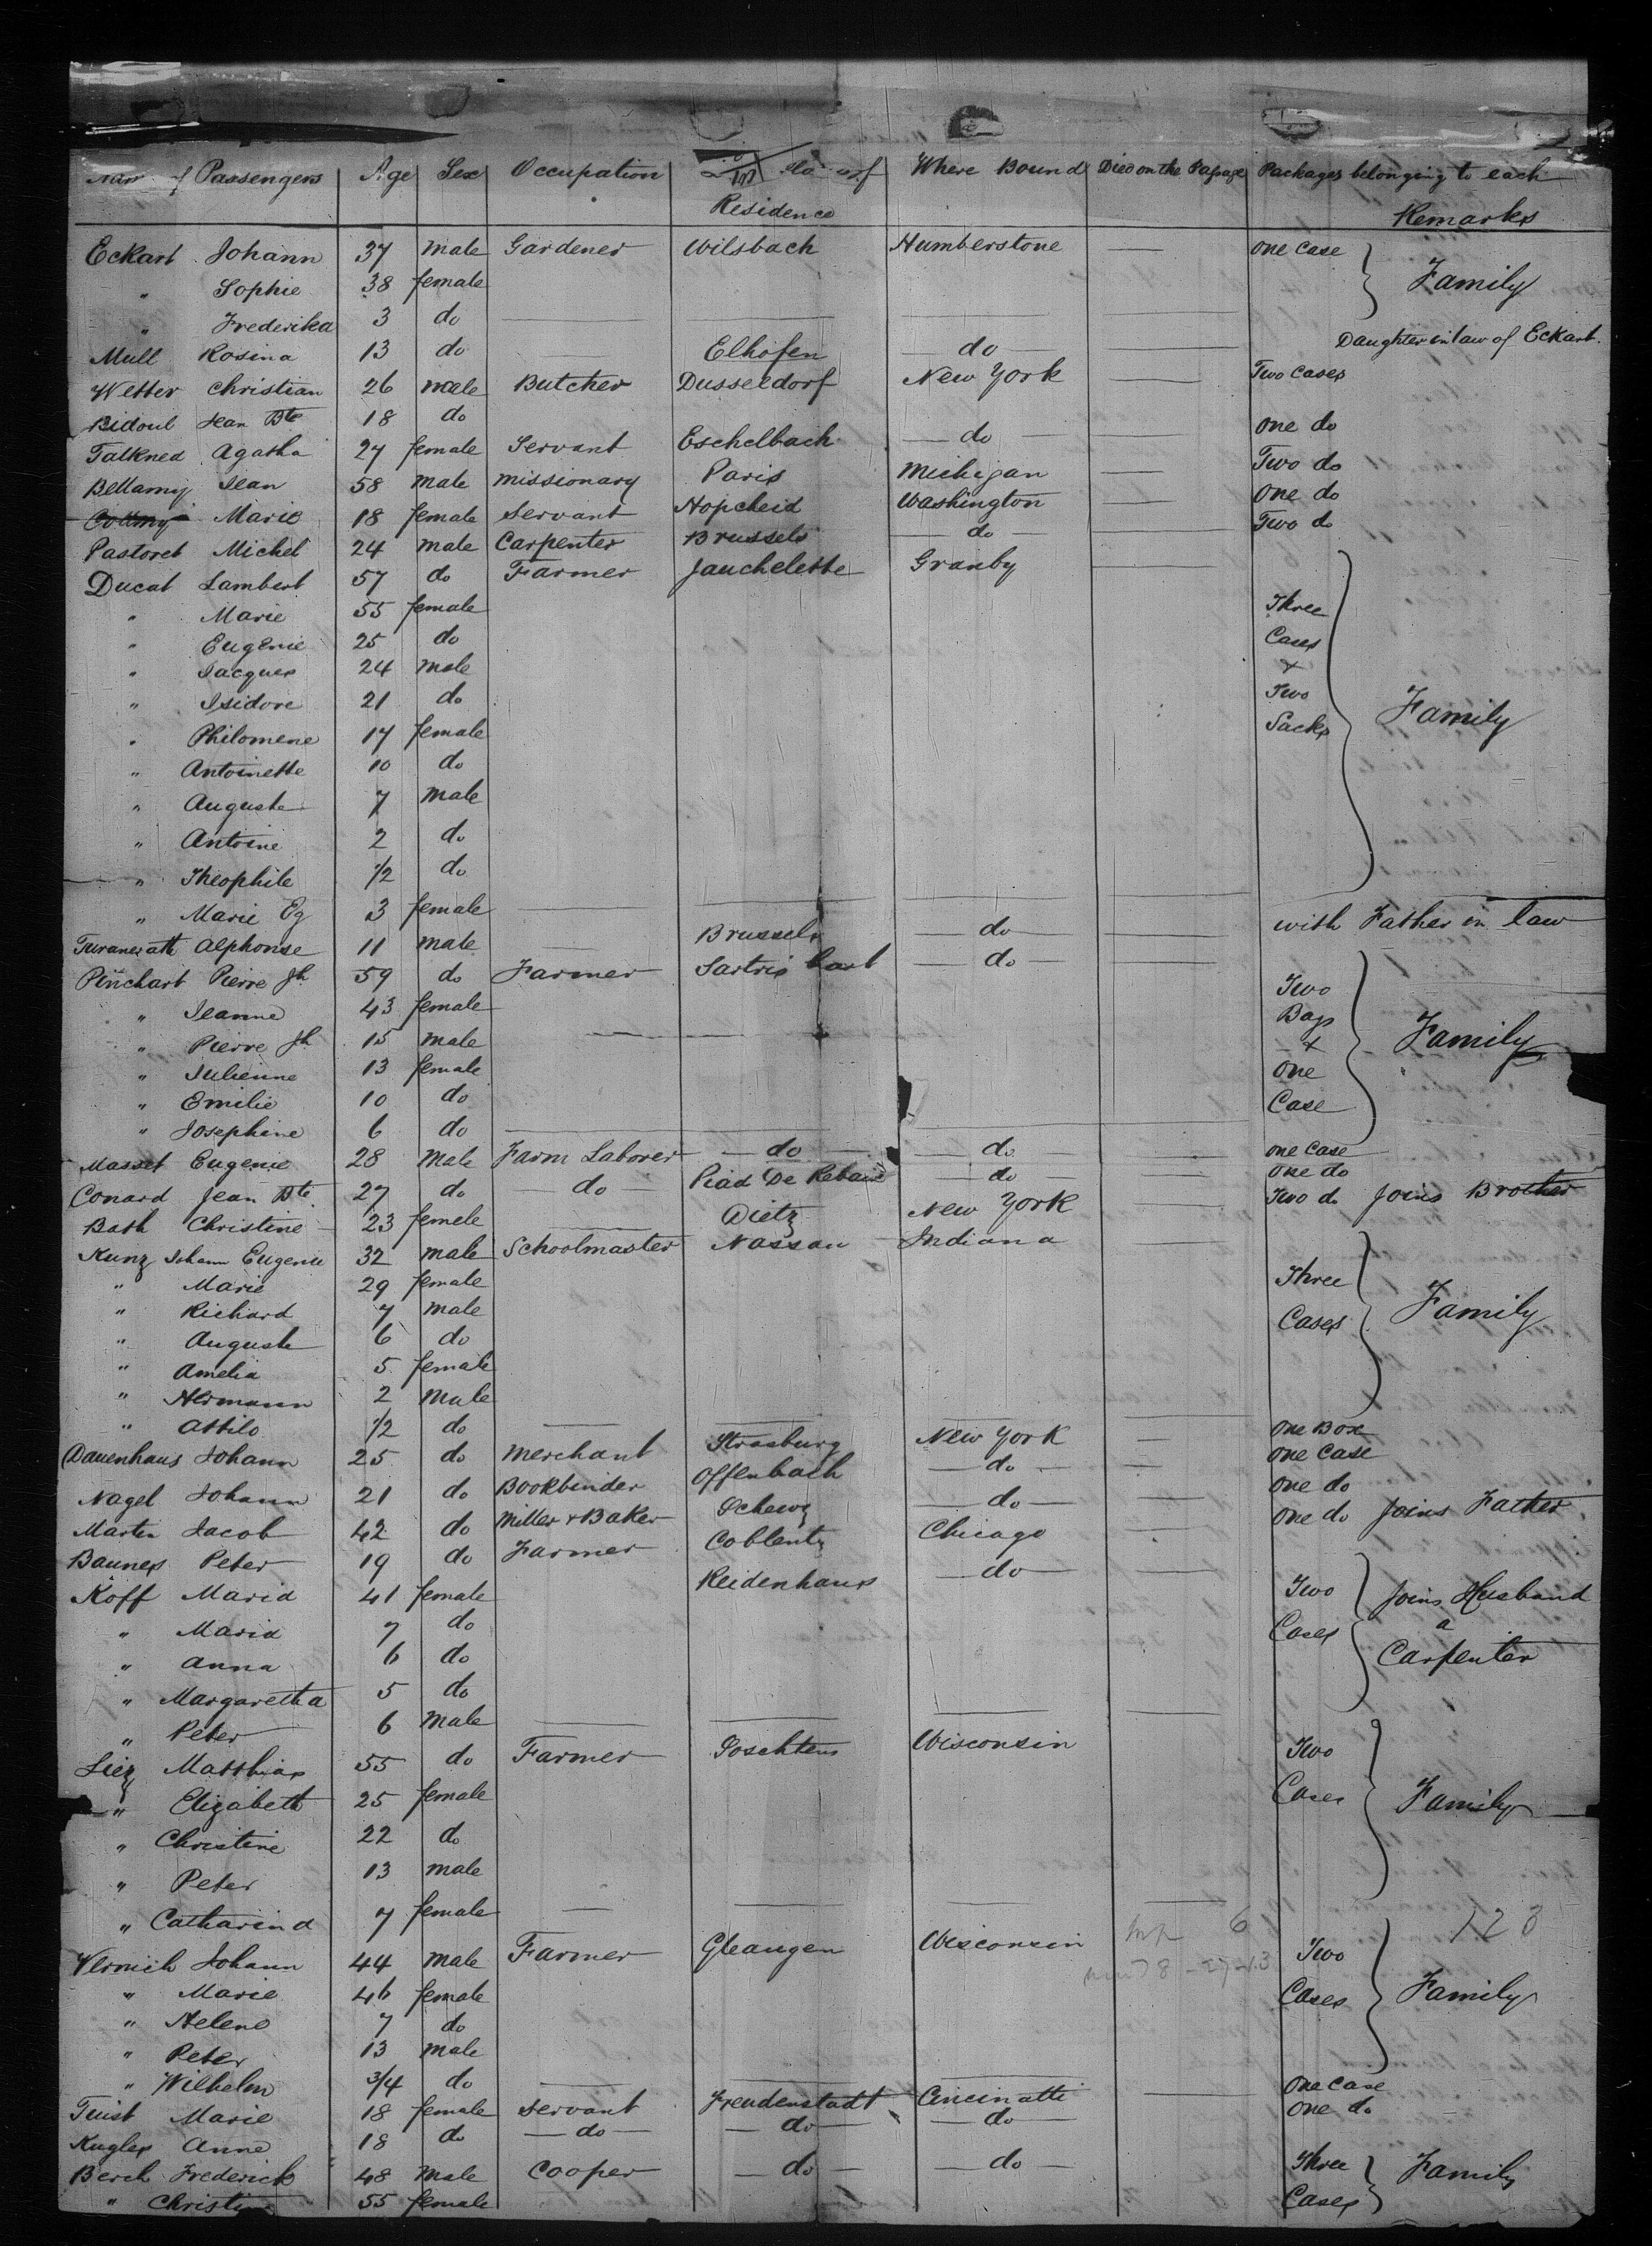 Name of Passengers Age Sex Occupation Place of Residence Where Bound Died on the Passage Packages belonging to each Remarks
Eckart Johann 37 male Gardener Wilsbach Humberstone — one case Family
" Sophie 38 female
" Frederika 3 do — — — —
Mull Rosina 13 do — Elhofen — do — — Daughter in law of Eckart.
Wetter Christian 26 male Butcher Dusseldorf New York — Two Cases
Bidoul Jean Bte 18 do
Talkned Agatha 27 female Servant Eschelbach — do — — one do
Bellamy Jean 58 male missionary Paris Michigan — Two do
Marie 18 female Servant Hopcheid Washington — one do
Pastoret Michel 24 male Carpenter Brussels — do — — Two do
Ducat Lambert 57 do Farmer Jauchelette Granby —
" Marie 55 female Three
" Eugenie 25 do Cases
" Jacques 24 male &
" Isidore 21 do Two Family
" Philomene 17 female Sacks
" Antoinette 10 do
" Auguste 7 male
" Antoine 2 do
" Theophile 1/2 do
" Marie Eg 3 female — — — —
alphonse 11 male — Brussels — do — with Father in law
Pinchart Pierre Jh 59 do Farmer Sartris bart — do —
" Jeanne 43 female Two
" Pierre Jh 15 male Bags Family
" Julienne 13 female &
" Emilie 10 do One
" Josephine 6 do — — — — Case
Masset Eugenie 28 male Farm Laborer — do — — do — — one case
Conard Jean Bte 27 do — do — Piad De — do — — one do
Bath Christine 23 female — Dietz New York — Two do Joins Brother
Kunz Johann Eugenie 32 male Schoolmaster Nassau Indiana —
" Marie 29 female Three
" Richard 7 male Cases Family
" Auguste 6 do
" Amelia 5 female
" Hermann 2 male
" Attilo 1/2 do — — — —
Dauenhaus Johann 25 do merchant Strasburg New York — one Box
Nagel Johann 21 do Bookbinder Offenbach — do — — one case
Martin Jacob 42 do Miller & Baker — do — — one do
Baunes Peter 19 do Farmer Coblentz Chicago — one do Joins Father
Koff Maria 41 female Reidenhaus — do — —
" Maria 7 do Two Joins Husband
" Anna 6 do Cases a
" Margaretha 5 do Carpenter
" Peter 6 male — — — —
Liez Matthias 55 do Farmer Soschtens Wisconsin Two
" Elizabeth 25 female Cases Family
" Christine 22 do
" Peter 13 male
" Catharina 7 female — — — —
6 128
Wernich Johann 44 male Farmer Gleangen Wisconsin Two
" Marie 46 female Cases Family
" Helene 7 do
" Peter 13 male
" Wilhelm 3/4 do — — — —
Tuist Marie 18 female servant Freudenstadt Cincinatti one case
Kugler Anne 18 do — do — — do — — do — one do
Berch Frederick 48 male Cooper — do — — do — Three Family
" Christine 55 female Cases